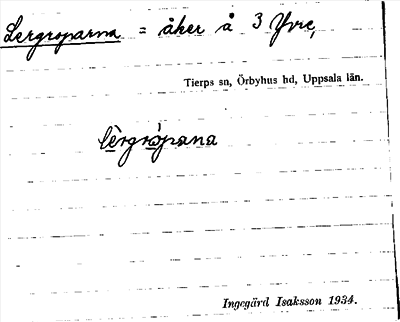 Lergroparna = åker å 3 Yvre,
Tierps sn, Örbyhus hd, Uppsala län.
lèrgrópana
Ingegärd Isaksson 1934.